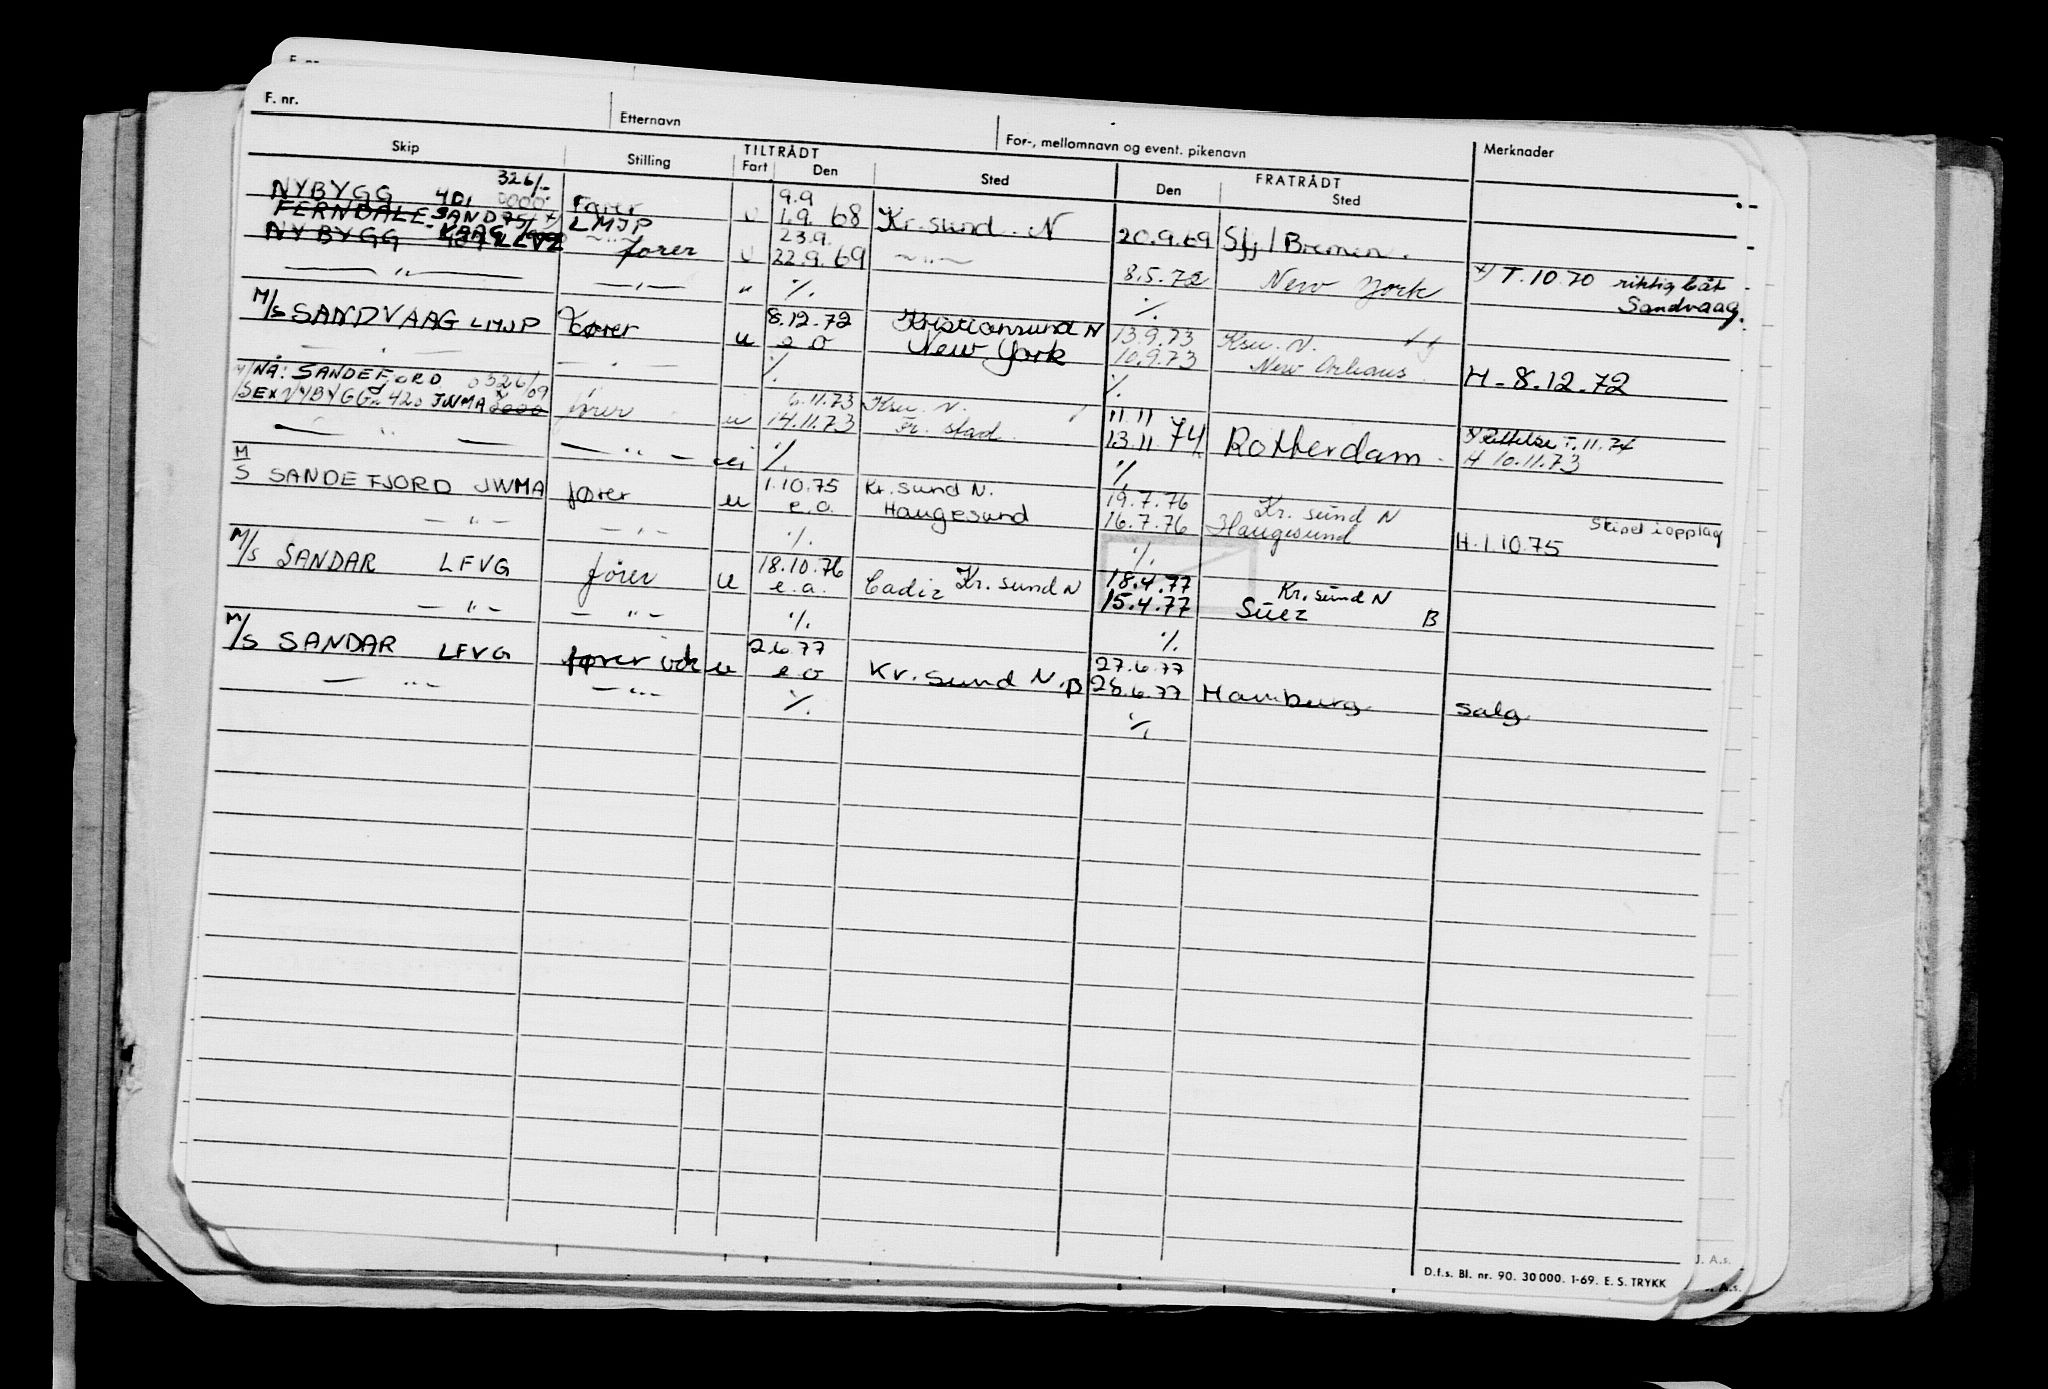 F. nr.
F. nr. Etternavn For-, mellomnavn og event. pikenavn Merknader
Skip Stilling TILTRÅDT FRATRÅDT
Fart Den Sted Den Sted
326/-
NYBYGG 401 fører 9.9
FERNDALE SANDVAAG LMJP u 1.9.68 Kr.sund. N 20.9.69 Sfj / Bremen.
NYBYGG fører 23.9.
u 22.9.69 -"- 8.5.72 New York x) T.10.70 riktig båt
- " - - " - " %. %. Sandvaag.
M/S SANDVAAG LMJP fører 8.12.72 Kristiansund N 13.9.73 Ksu. N.
u e o New York 10.9.73 New Orleans H - 8.12.72
- " - - " - %. %.
NÅ: SANDEFJORD 0326/09
M/S EX NYBYGG 420 JWMA 0000 fører 6.11.73 Ksu. N. 11.11
u 14.11.73 Fr. stad. 13.11.74 Rotterdam. x) Rettelse T.11.74
- " - - " - %. %. H 10.11.73
M/S SANDEFJORD JWMA fører 1.10.75 Kr. sund N. 19.7.76 Kr. sund N Skipet i opplag
u e.o. Haugesund 16.7.76 Haugesund H.1.10.75
- " - - " - %. %.
M/S SANDAR LFVG fører 18.10.76 18.4.77 Kr. sund N
u e.o. Cadiz Kr. sund N 15.4.77 Suez B
- " - - " - %. %.
M/S SANDAR LFVG fører u 2.6.77 27.6.77
e.o Kr. sund N. B 25.6.77 Hamburg salg
- " - - " - %. %.
J. A.s.
D.f.s. Bl. nr. 90. 30 000. 1-69. E. S. TRYKK
A.s.